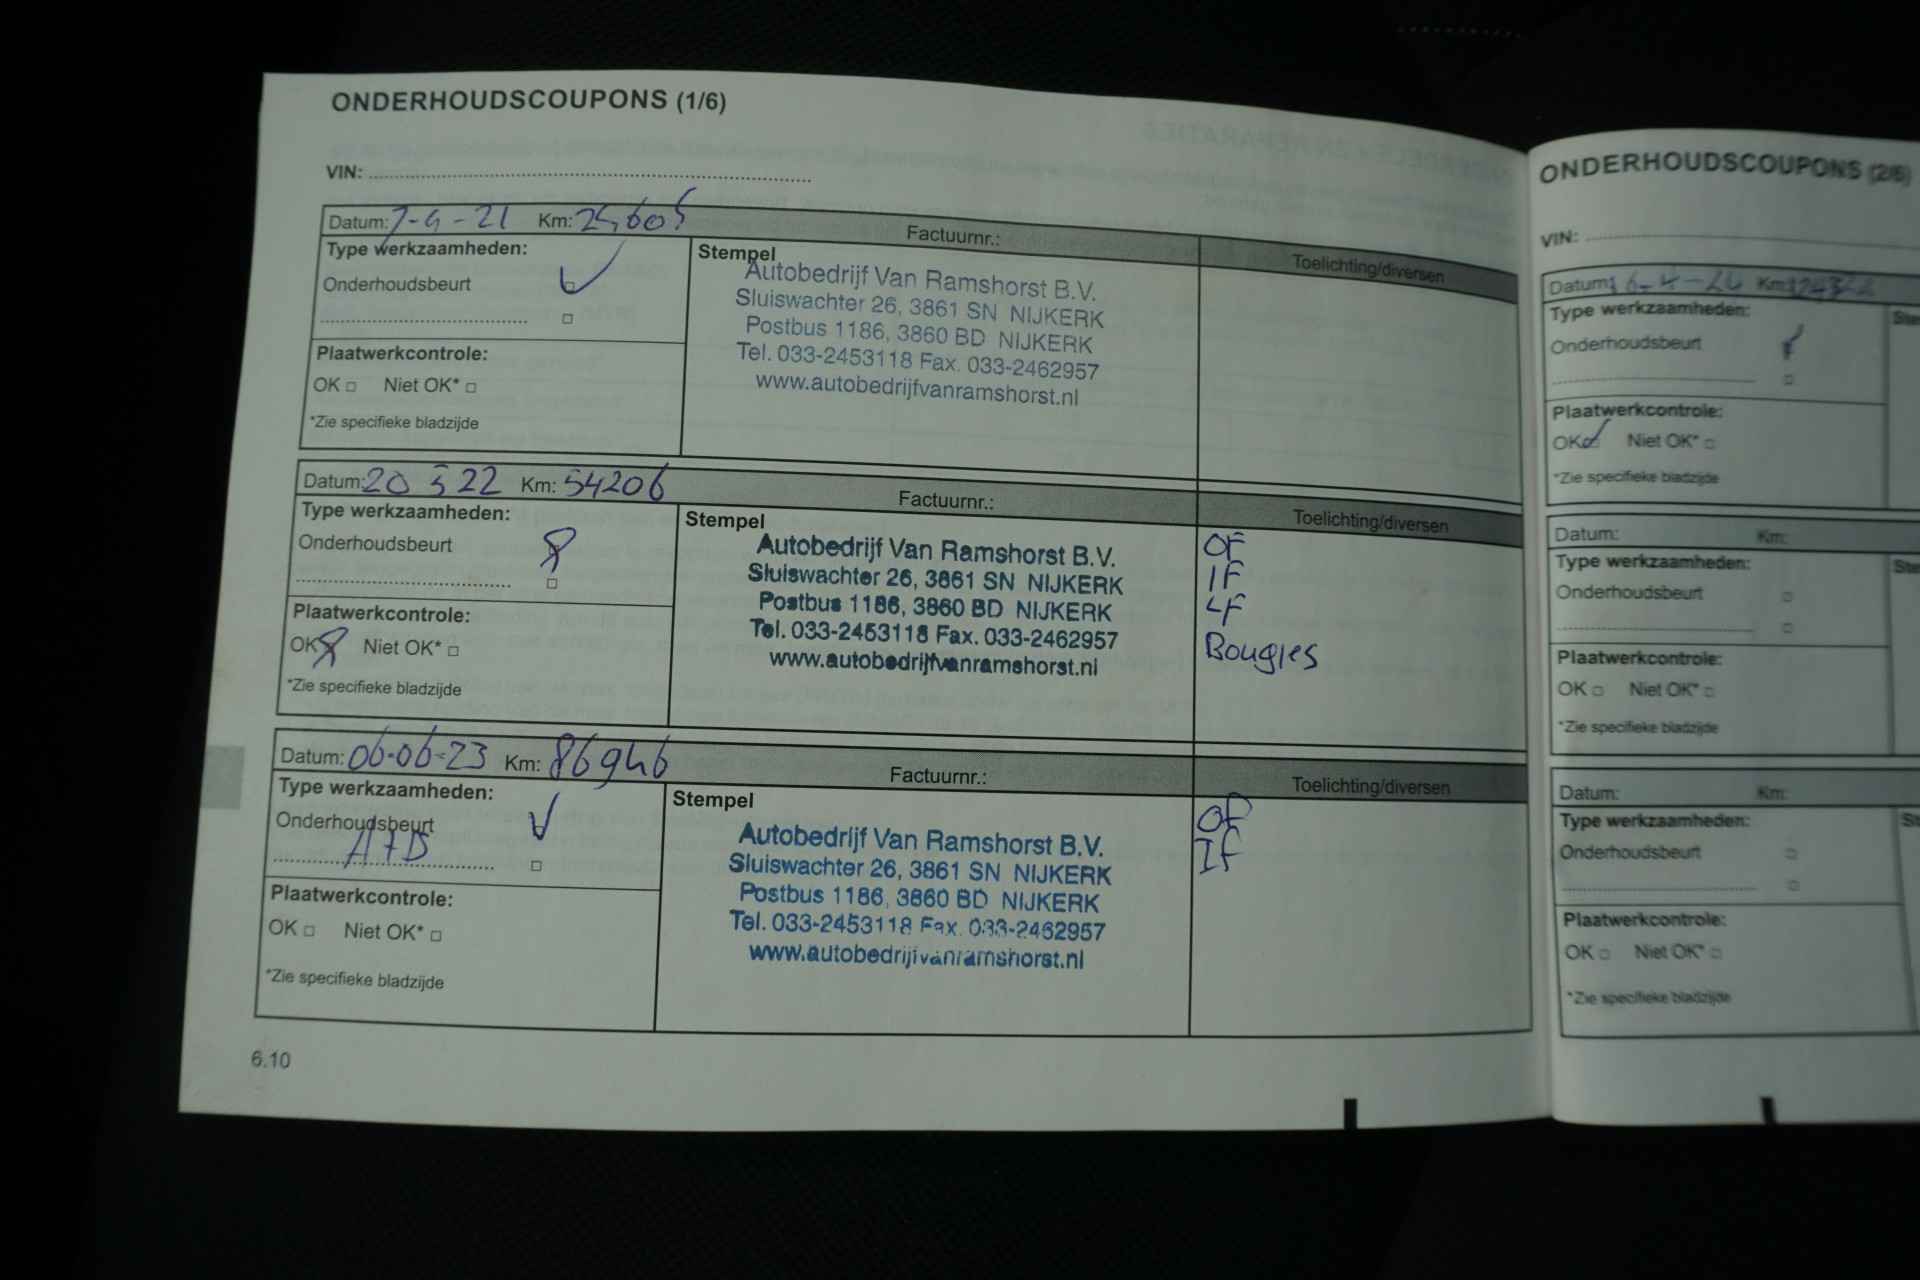 ONDERHOUDSCOUPONS (1/6)
VIN:
Datum: 7-9-21 Km: 25,605 Factuurnr.: Toelichting/diversen
Type werkzaamheden:
Onderhoudsbeurt
Plaatwerkcontrole:
OK Niet OK*
*Zie specifieke bladzijde
Stempel
Autobedrijf Van Ramshorst B.V.
Sluiswachter 26, 3861 SN NIJKERK
Postbus 1186, 3860 BD NIJKERK
Tel. 033-2453118 Fax. 033-2462957
www.autobedrijfvanramshorst.nl
Datum: 20 5 22 Km: 54206 Factuurnr.: Toelichting/diversen
Type werkzaamheden:
Onderhoudsbeurt
Plaatwerkcontrole:
OK Niet OK*
*Zie specifieke bladzijde
Stempel
Autobedrijf Van Ramshorst B.V.
Sluiswachter 26, 3861 SN NIJKERK
Postbus 1186, 3860 BD NIJKERK
Tel. 033-2453118 Fax. 033-2462957
www.autobedrijfvanramshorst.nl
OF
IF
LF
Bougies
Datum: 06-06-23 Km: 86946 Factuurnr.: Toelichting/diversen
Type werkzaamheden:
Onderhoudsbeurt
A+B
Plaatwerkcontrole:
OK Niet OK*
*Zie specifieke bladzijde
Stempel
Autobedrijf Van Ramshorst B.V.
Sluiswachter 26, 3861 SN NIJKERK
Postbus 1186, 3860 BD NIJKERK
Tel. 033-2453118 Fax. 033-2462957
www.autobedrijfvanramshorst.nl
OF
IF
6.10
ONDERHOUDSCOUPONS (2/6)
VIN:
Datum: Km:
Type werkzaamheden:
Onderhoudsbeurt
Plaatwerkcontrole:
OK Niet OK*
*Zie specifieke bladzijde
Datum: Km:
Type werkzaamheden:
Onderhoudsbeurt
Plaatwerkcontrole:
OK Niet OK*
*Zie specifieke bladzijde
Datum: Km:
Type werkzaamheden:
Onderhoudsbeurt
Plaatwerkcontrole:
OK Niet OK*
*Zie specifieke bladzijde